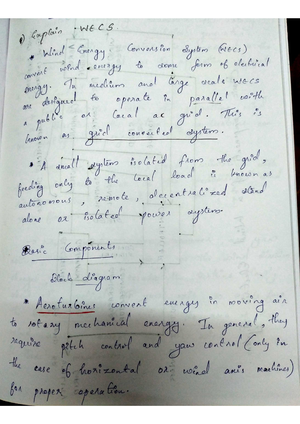 1) Explain WECS
• Wind Energy Conversion System (WECS)
convert wind energy to some form of electrical
energy. In medium and large scale WECS
are designed to operate in parallel with
a public or local ac grid. This is
known as grid connected system.
• A small system isolated from the grid,
feeding only to the local load is known as
autonomous, remote, decentralized stand
alone or isolated power system.
Basic Components
Block diagram
• Aeroturbines convert energy in moving air
to rotary mechanical energy. In general, they
require pitch control and yaw control (only in
the case of horizontal or wind axis machines)
for proper operation.